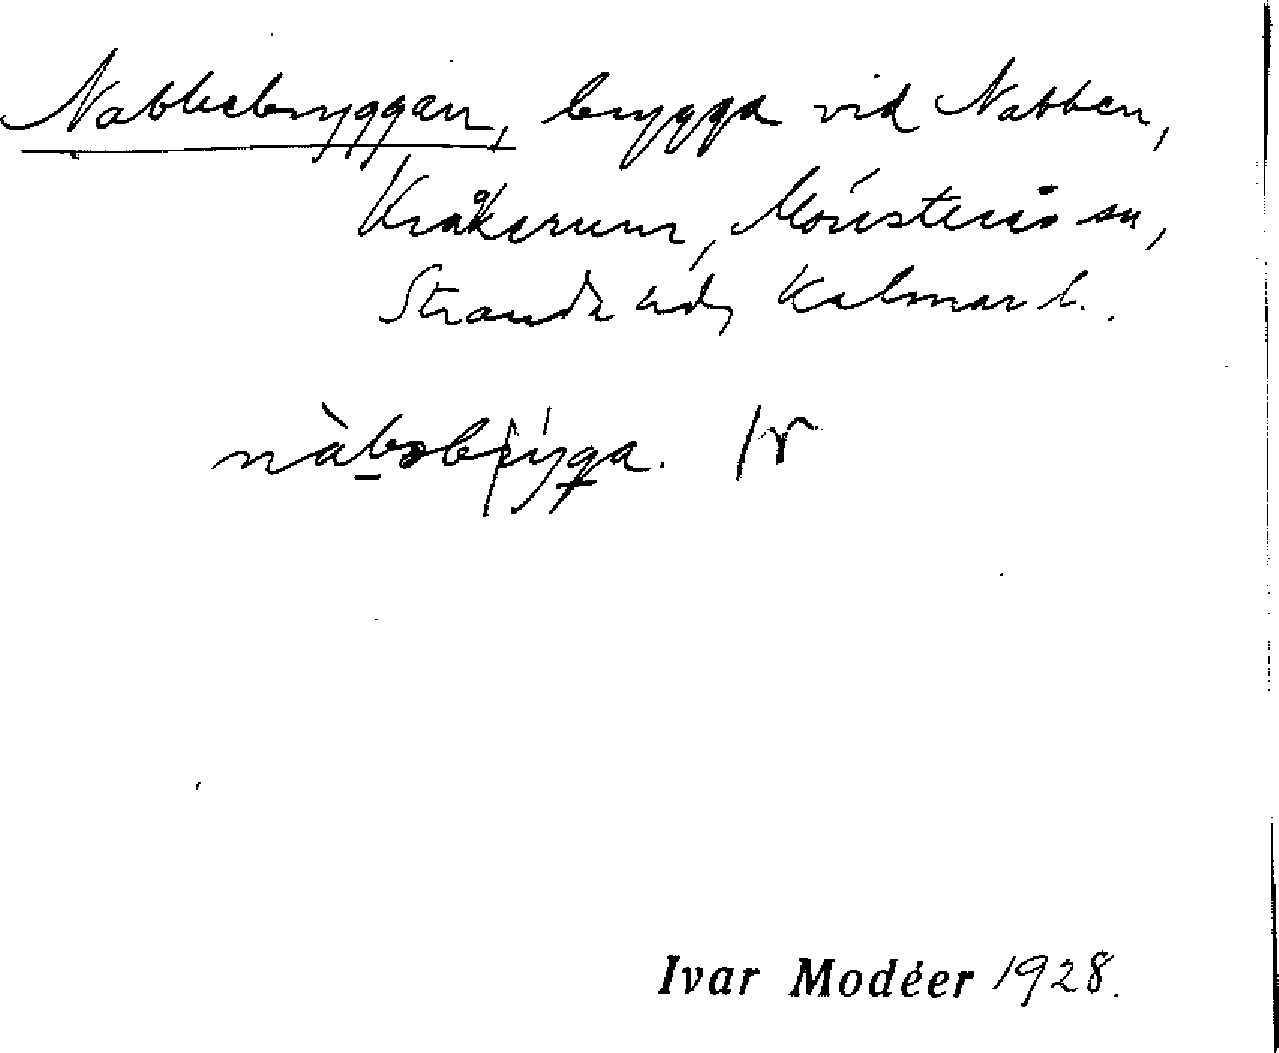 Nabbebryggan, brygga vid Nabben,
Kråkerum, Mönsterås sn,
Stranda hd, Kalmar l.
nàbəbrýga.
Ivar Modéer 1928.